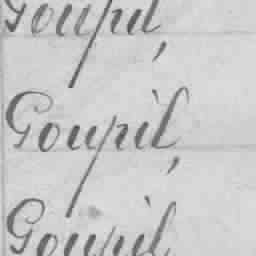 Goupil,
Goupil,
Goupil